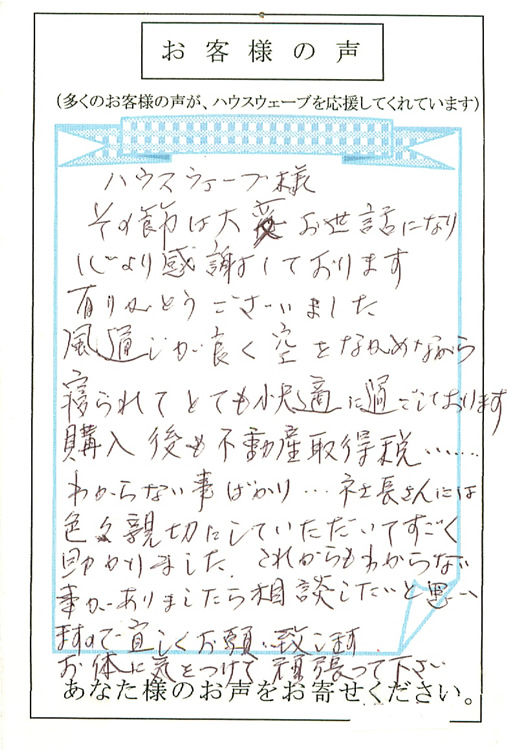 お客様の声
(多くのお客様の声が、ハウスウェーブを応援してくれています)
ハウスウェーブ様
その節は大変お世話になり
心より感謝しております
有りがとうございました
風通しが良く空をながめながら
寝られてとても快適に過ごしております
購入後も不動産取得税……
わからない事ばかり…社長さんには
色々親切にしていただいてすごく
助かりました。これからもわからない
事がありましたら相談したいと思い
ますので宜しくお願い致します。
お体に気をつけて頑張って下さい
あなた様のお声をお寄せください。